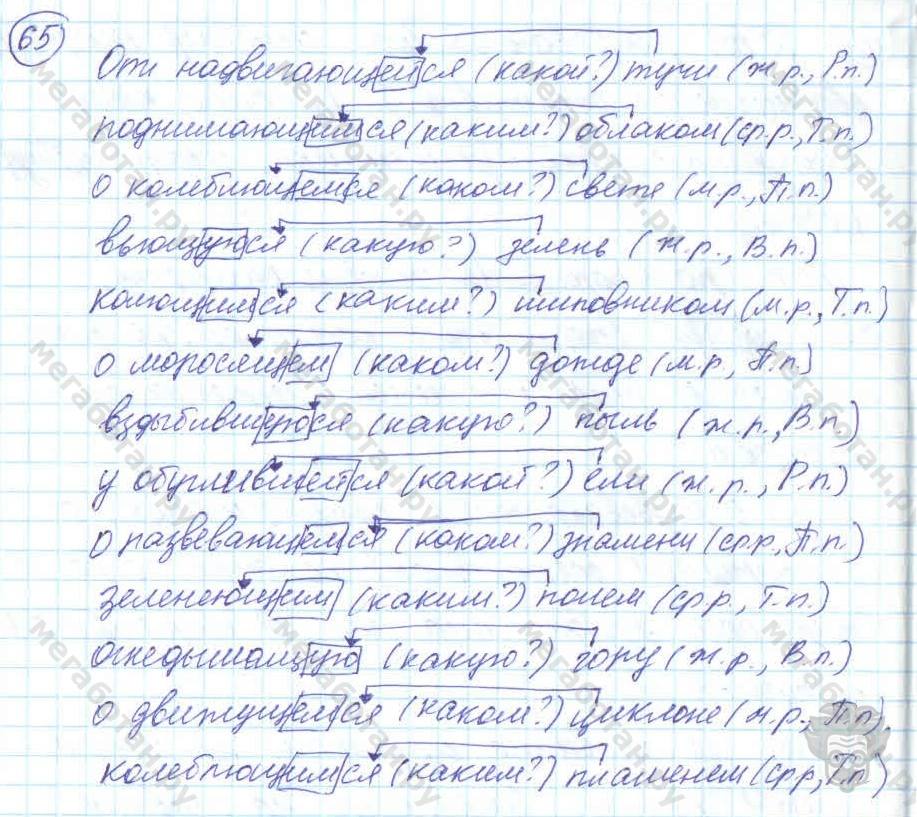 65
От надвигающейся (какой?) тучи (ж.р., Р.п.)
поднимающимся (каким?) облаком (ср.р., Т.п.)
о колеблющемся (каком?) свете (м.р., П.п.)
вьющуюся (какую?) зелень (ж.р., В.п.)
колющимся (каким?) шиповником (м.р., Т.п.)
о моросящем (каком?) дожде (м.р, П.п.)
вздыбившуюся (какую?) пыль (ж.р., В.п.)
у обуглившейся (какой?) ели (ж.р., Р.п.)
о развевающемся (каком?) знамени (ср.р, П.п.)
зеленеющим (каким?) полем (ср.р., Т.п.)
огнедышащую (какую?) гору (ж.р., В.п.)
о движущемся (каком?) циклоне (м.р., П.п),
колеблющимся (каким?) пламенем (ср.р, Т.п)
мегаботан.ру